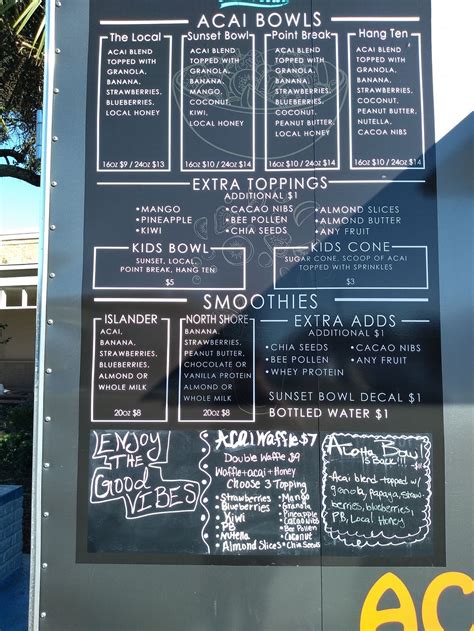 ACAI BOWLS
The Local
ACAI BLEND
TOPPED WITH
GRANOLA,
BANANA,
STRAWBERRIES,
BLUEBERRIES,
LOCAL HONEY
16oz $9 / 24oz $13
Sunset Bowl
ACAI BLEND
TOPPED WITH
GRANOLA,
BANANA,
MANGO,
COCONUT,
KIWI,
LOCAL HONEY
16oz $10 / 24oz $14
Point Break
ACAI BLEND
TOPPED WITH
GRANOLA,
BANANA,
STRAWBERRIES,
BLUEBERRIES,
COCONUT,
PEANUT BUTTER
16oz $10 / 24oz $14
Hang Ten
ACAI BLEND
TOPPED WITH
GRANOLA,
BANANA,
COCONUT,
PEANUT BUTTER,
NUTELLA,
CACAO NIBS
16oz $10 / 24oz $14
EXTRA TOPPINGS
ADDITIONAL $1
•MANGO
•PINEAPPLE
•KIWI
•CACAO NIBS
•BEE POLLEN
•CHIA SEEDS
•ALMOND SLICES
•ALMOND BUTTER
•ANY FRUIT
KIDS BOWL
SUNSET, LOCAL,
POINT BREAK, HANG TEN
$5
KIDS CONE
SUGAR CONE, SCOOP OF ACAI
TOPPED WITH SPRINKLES
$3
SMOOTHIES
ISLANDER
ACAI,
BANANA,
STRAWBERRIES,
BLUEBERRIES,
ALMOND OR
WHOLE MILK
20oz $8
NORTH SHORE
BANANA,
STRAWBERRIES,
PEANUT BUTTER,
CHOCOLATE OR
VANILLA PROTEIN
ALMOND OR
WHOLE MILK
20oz $8
EXTRA ADDS
ADDITIONAL $1
•CHIA SEEDS
•BEE POLLEN
•WHEY PROTEIN
•CACAO NIBS
•ANY FRUIT
SUNSET BOWL DECAL $1
BOTTLED WATER $1
ENJOY
THE
GOOD
VIBES
Acai Waffle $7
Double Waffle $9
Waffle + acai + Honey
Choose 3 Topping
•Strawberries
•Blueberries
•Kiwi
•PB
•Nutella
•Almond Slices
•Mango
•Granola
•Pineapple
•Cacao Nibs
•Bee Pollen
•Coconut
•Chia Seeds
Aloha Bowl
Is Back!!!
Acai blend topped w/
granola, papaya, straw-
berries, blueberries,
PB, Local Honey
AC